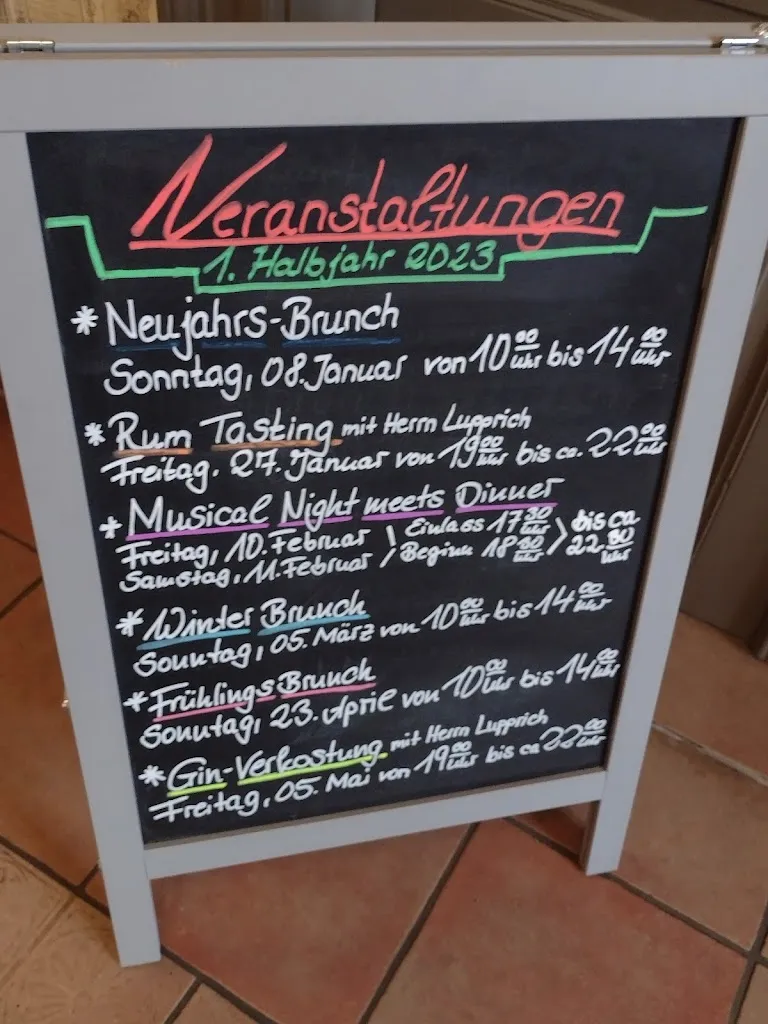 Veranstaltungen
1. Halbjahr 2023
* Neujahrs-Brunch
Sonntag, 08. Januar von 10⁰⁰ Uhr bis 14⁰⁰ Uhr
* Rum Tasting mit Herrn Lupprich
Freitag. 27. Januar von 19⁰⁰ Uhr bis ca. 22⁰⁰ Uhr
* Musical Night meets Dinner
Freitag, 10. Februar \ Einlass 17³⁰ Uhr \ bis ca
Samstag, 11. Februar / Beginn 18³⁰ Uhr / 22³⁰ Uhr
* Winter Brunch
Sonntag, 05. März von 10⁰⁰ Uhr bis 14⁰⁰ Uhr
* Frühlings Brunch
Sonntag, 23. April von 10⁰⁰ Uhr bis 14⁰⁰ Uhr
* Gin-Verkostung mit Herrn Lupprich
Freitag, 05. Mai von 19⁰⁰ Uhr bis ca 22⁰⁰ Uhr